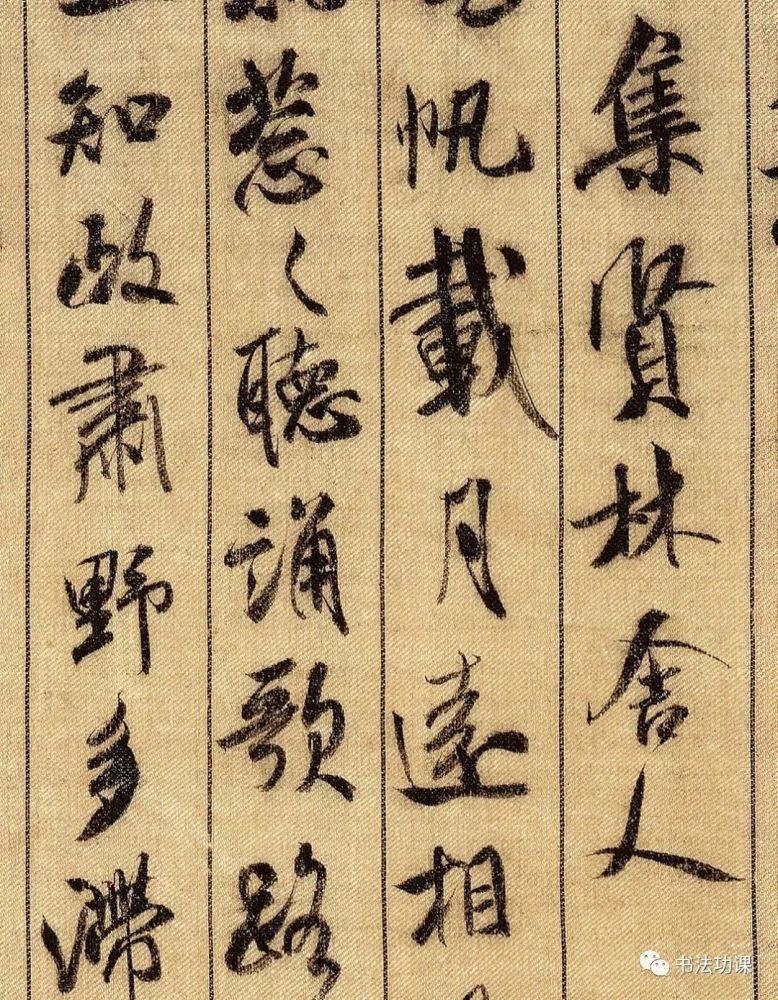 集賢林舍人
帆載月遠相
葱々聽誦歌路
知政肅野多滯
书法功课